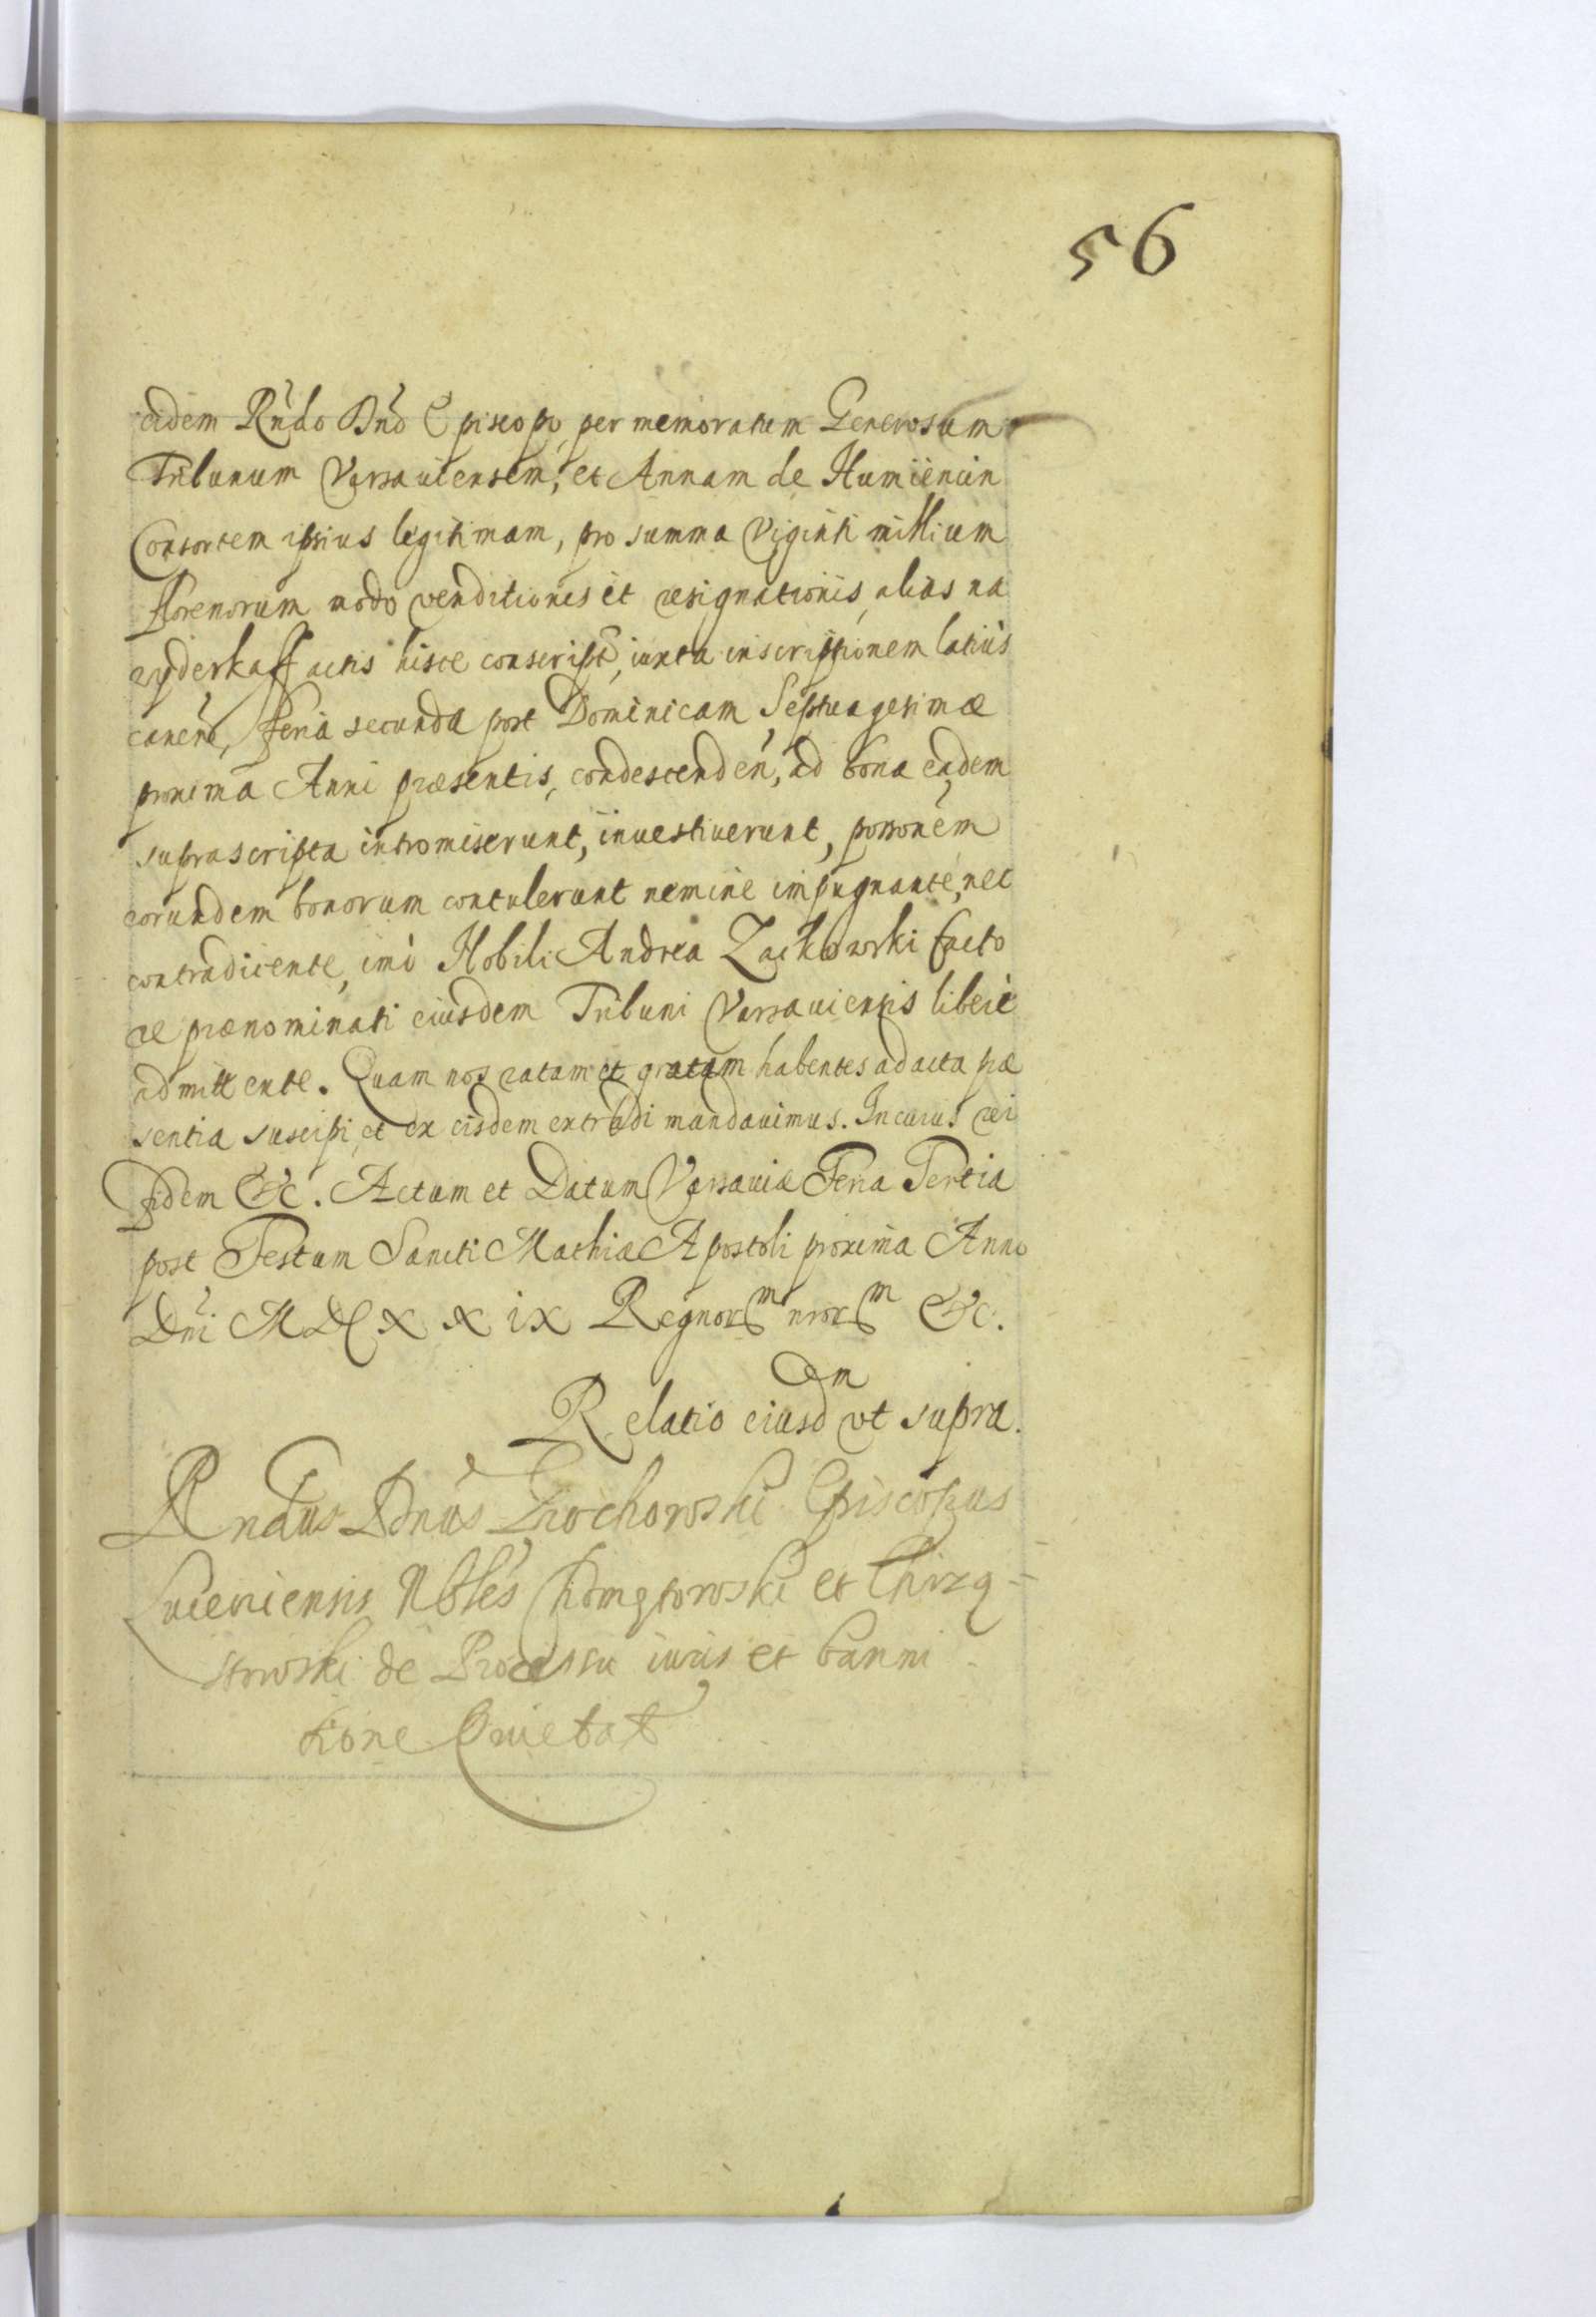 56
eidem Rndo Dno Episcopo, per memoratum Generosum
Tribunum Varsauiensem, et Annam de Humiiencin
Consortem ipsius legitimam, pro summa Viginti millium
florenorum modo venditionis et resignationis, alias na
zyderkaff actis hisce conscript, iuxta inscriptionem latius
canen, feria secunda post Dominicam Septuagesimæ
proxima Anni præsentis, condescenden, ad bona eadem
suprascripta intromiserunt, inuestiuerunt, possonem
eorundem bonorum contulerunt nemine impugnante, nec
contradicente, imo Nobili Andrea Zackowski facto
re prænominati eiusdem Tribuni Varsauiensis libere
admittente. Quam nos ratam et gratam habentes ad acta præ
sentia suscipi, et ex eisdem extradi mandauimus. In cuius rei
fidem &c. Actum et Datum Varsauiæ Feria Tertia
post Festum Sancti Mathiæ Apostoli proxima Anno
Dni MDCXXIX Regnorm nrorm &c.
Relatio eiusdem vt supra.
Rndus Dnus Grochowski Episcopus
Luceoriensis Nbles et
de Processu iuris et banni
tione Quietat